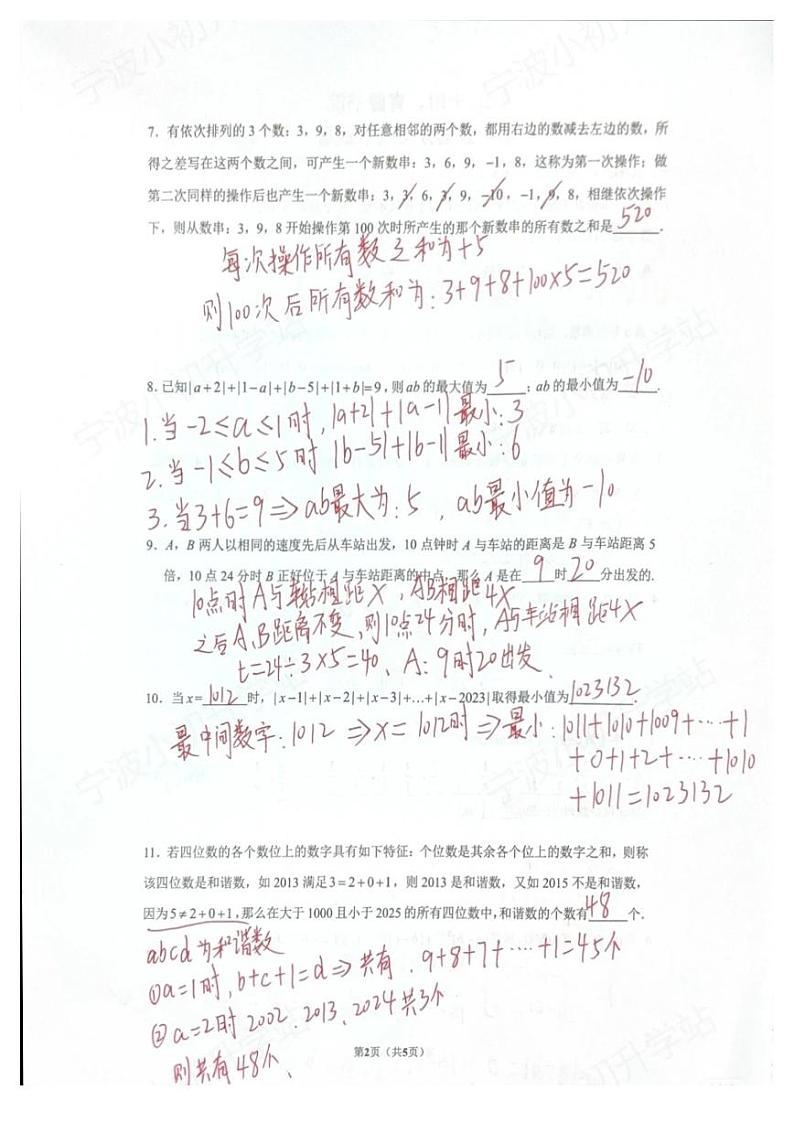 7. 有依次排列的 3 个数：3，9，8，对任意相邻的两个数，都用右边的数减去左边的数，所
得之差写在这两个数之间，可产生一个新数串：3，6，9，-1，8，这称为第一次操作；做
第二次同样的操作后也产生一个新数串：3，3，6，3，9，-10，-1，9，8，相继依次操作
下，则从数串：3，9，8 开始操作第 100 次时所产生的那个新数串的所有数之和是 520 .
每次操作所有数之和为+5
则100次后所有数和为：3+9+8+100×5=520
8. 已知|a+2|+|1-a|+|b-5|+|1+b|=9，则 ab 的最大值为 5 ；ab 的最小值为 -10 .
1.当 -2≤a≤1时，|a+2|+|a-1|最小：3
2.当 -1≤b≤5时 |b-5|+|b-1|最小：6
3.当3+6=9⇒ab最大为：5，ab最小值为-10
9. A，B 两人以相同的速度先后从车站出发，10 点钟时 A 与车站的距离是 B 与车站距离 5
倍，10 点 24 分时 B 正好位于 A 与车站距离的中点，那么 A 是在 9 时 20 分出发的.
10点时A与车站相距x，AB相距4x
之后A、B距离不变，则10点24分时，A与车站相距4x
t=24÷3×5=40、A：9时20出发、
10. 当 x= 1012 时，|x-1|+|x-2|+|x-3|+…+|x-2023|取得最小值为 1023132 .
最中间数字：1012 ⇒x=1012时⇒最小：1011+1010+1009+…+1
+0+1+2+…+1010
+1011=1023132
11. 若四位数的各个数位上的数字具有如下特征：个位数是其余各个位上的数字之和，则称
该四位数是和谐数，如 2013 满足3=2+0+1，则 2013 是和谐数，又如 2015 不是和谐数，
因为5≠2+0+1，那么在大于 1000 且小于 2025 的所有四位数中，和谐数的个数有 48 个.
abcd为和谐数
①a=1时，b+c+1=d⇒共有：9+8+7+…+1=45个
②a=2时 2002、2013、2024 共3个
则共有48个、
第2页（共5页）
宁波小初升学站